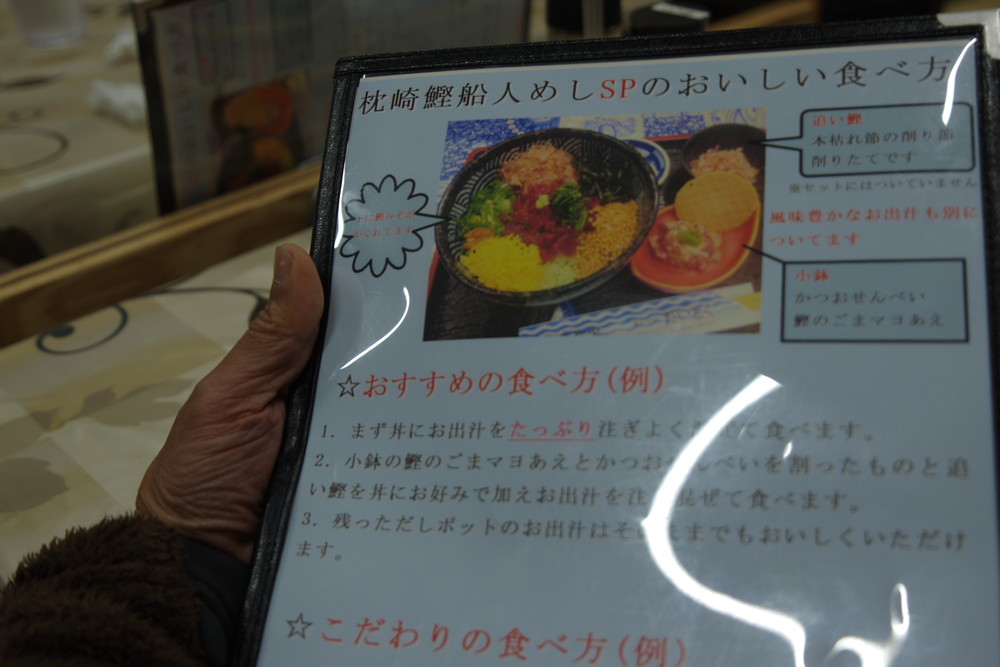 枕崎鰹船人めしSPのおいしい食べ方
追い鰹
本枯れ節の削り節
削りたてです
※セットにはついていません
風味豊かなお出汁も別に
ついてます
小鉢
かつおせんべい
鰹のごまマヨあえ
☆おすすめの食べ方(例)
1. まず丼にお出汁をたっぷり注ぎよく て食べます。
2. 小鉢の鰹のごまマヨあえとかつおせんべいを割ったものと追
い鰹を丼にお好みで加えお出汁を注 混ぜて食べます。
3. 残っただしポットのお出汁はそのままでもおいしくいただけ
ます。
☆こだわりの食べ方(例)